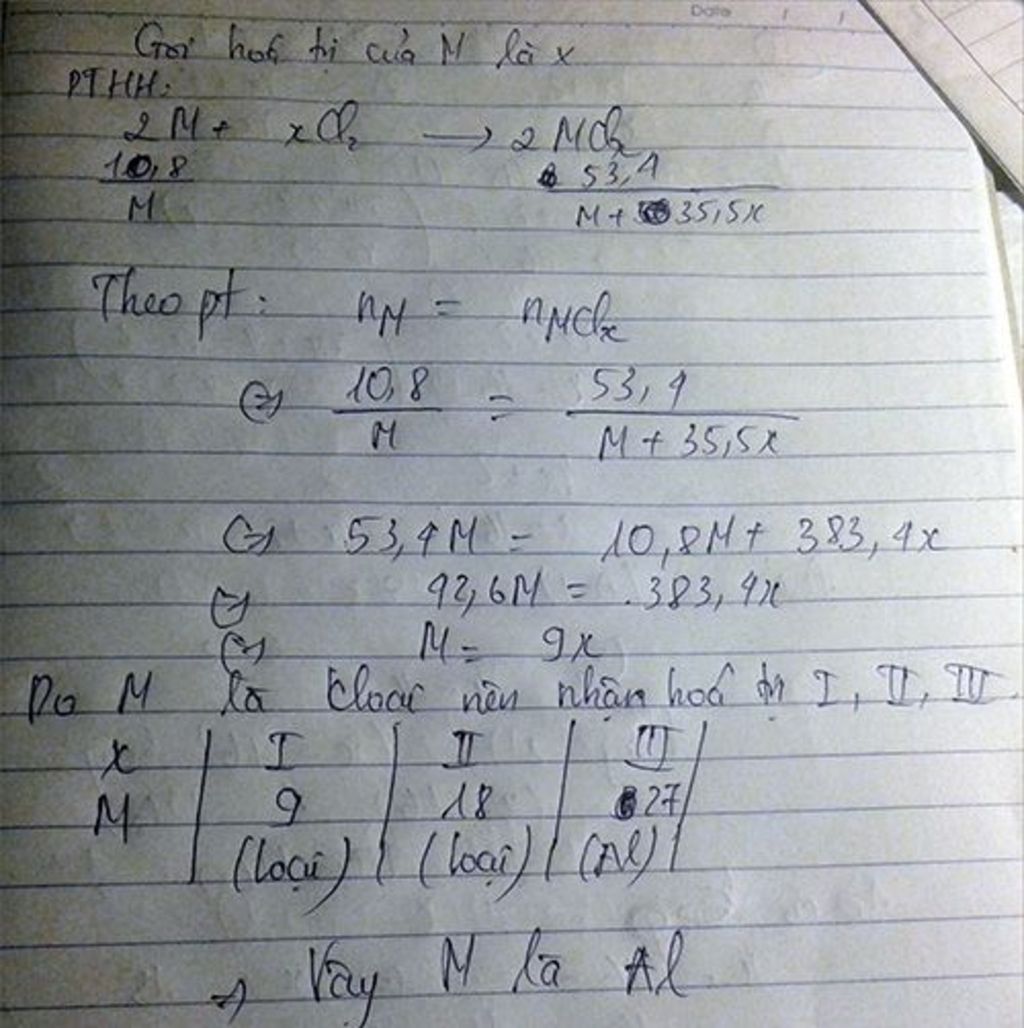 Date
Gọi hoá trị của M là x
PTHH:
2M + xCl₂ → 2MClₓ
10,8/M 53,4/(M + 35,5x)
Theo pt: nM = nMClₓ
⇔ 10,8/M = 53,4/(M + 35,5x)
⇔ 53,4M = 10,8M + 383,4x
⇔ 42,6M = 383,4x
⇔ M = 9x
Do M là kloại nên nhận hoá trị I, II, III
x | I | II | III |
M | 9 | 18 | 27 |
| (loại) | (loại) | (Al) |
⇒ Vậy M là Al